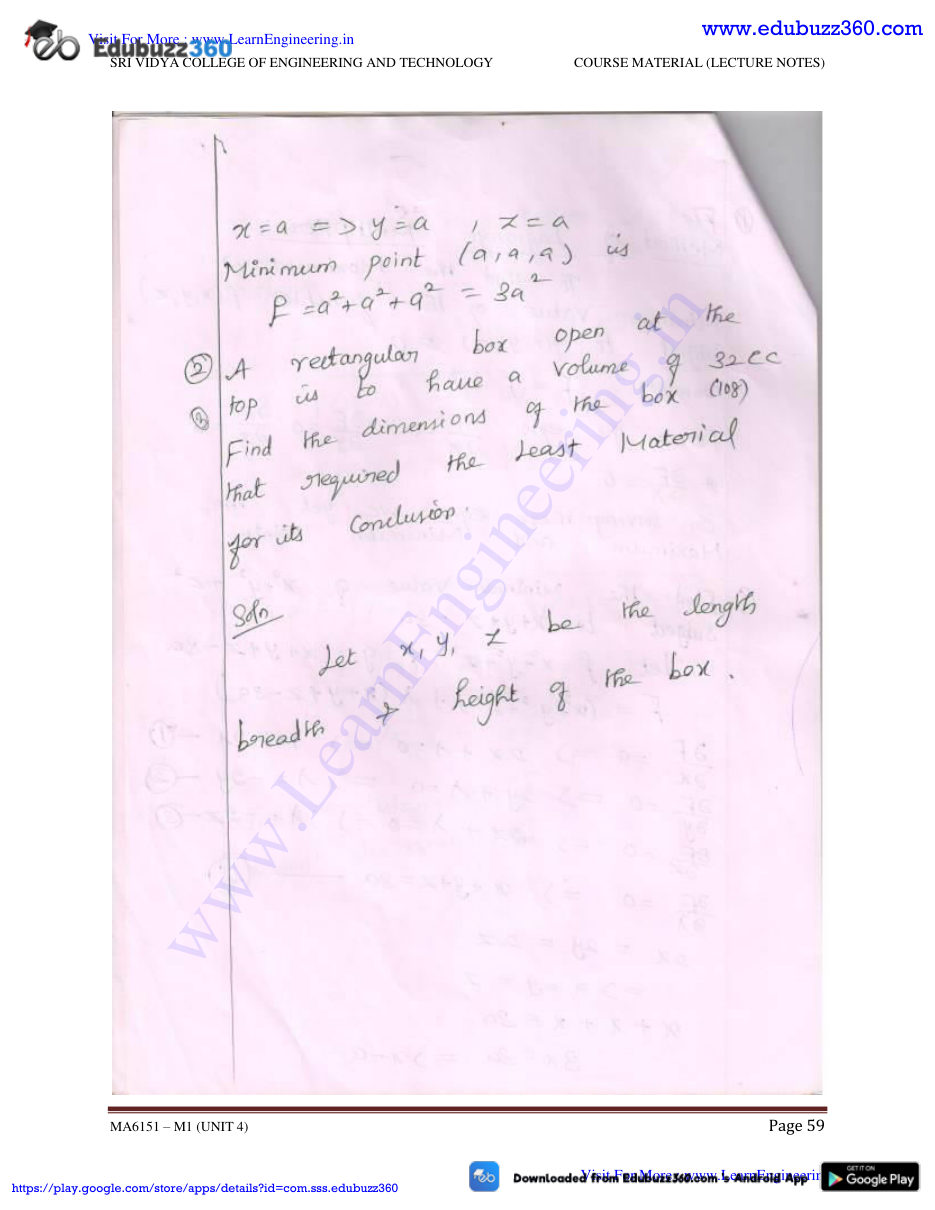 www.edubuzz360.com
Visit For More : www.LearnEngineering.in
Edubuzz360
SRI VIDYA COLLEGE OF ENGINEERING AND TECHNOLOGY COURSE MATERIAL (LECTURE NOTES)
x = a => y = a , z = a
Minimum point (a, a, a) is
f = a²+a²+a² = 3a²
② A rectangular box open at the
③ top is to have a volume of 32CC
Find the dimensions of the box (108)
that required the Least Material
for its Conclusion.
Soln
Let x, y, z be the length
breadth & height of the box.
www.LearnEngineering.in
MA6151 – M1 (UNIT 4) Page 59
https://play.google.com/store/apps/details?id=com.sss.edubuzz360
Downloaded from EduBuzz360.com's Android App
Visit For More : www.LearnEngineerin
GET IT ON
Google Play